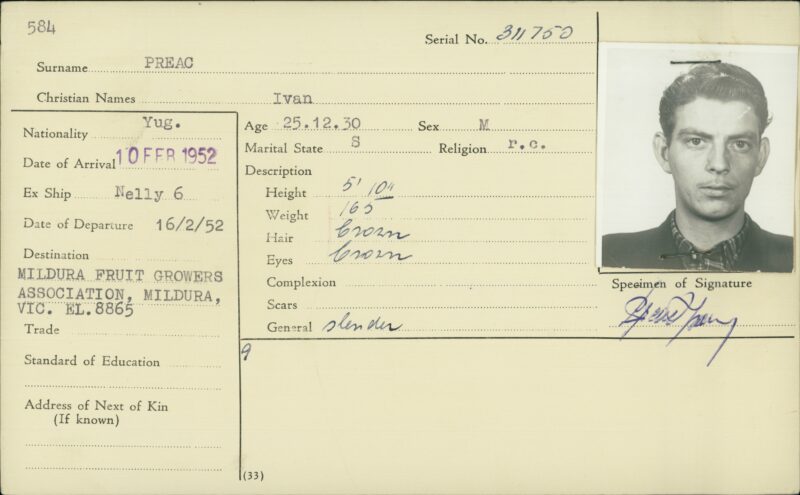 584
Serial No. 311750
Surname PREAC
Christian Names Ivan
Nationality Yug.
Date of Arrival 10 FEB 1952
Ex Ship Nelly 6
Date of Departure 16/2/52
Destination
MILDURA FRUIT GROWERS
ASSOCIATION, MILDURA,
VIC. EL.8865
Trade
Standard of Education
Address of Next of Kin
(If known)
Age 25.12.30 Sex M
Marital State S Religion r.c.
Description
Height 5' 10"
Weight 165
Hair brown
Eyes brown
Complexion
Scars
General slender
Specimen of Signature
9
(33)